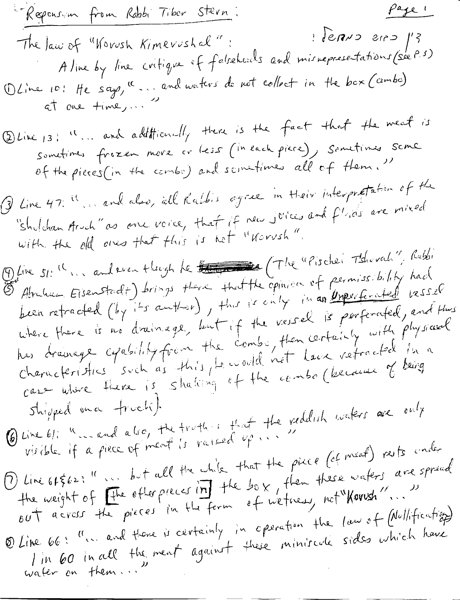 Responsum from Rabbi Tiber Stern: Page 1
The law of "Kovush Kimevushal": דין כבוש כמבשל:
A line by line critique of falsehoods and misrepresentations (see P.S)
① Line 10: He says, "... and waters do not collect in the box (combo)
at one time,..."
② Line 13: "... and additionally, there is the fact that the meat is
sometimes frozen more or less (in each piece), sometimes some
of the pieces (in the combo) and sometimes all of them."
③ Line 47: "... and also, all Rabbis agree in their interpretation of the
"Shulchan Aruch" as one voice, that if new juices and are mixed
with the old ones that this is not "Kovush".
④ Line 51: "... and even though he (The "Pischei Tshuvah", Rabbi
⑤ Abraham Eisenstadt) brings there that the opinion of permissibility had
been retracted (by its author), this is only in an Unperforated vessel
where there is no drainage, but if the vessel is perforated, and thus
has drainage capability from the combo, then certainly with physical
characteristics such as this, he would not have retracted in a
case where there is shaking of the combo (because of being
shipped on a truck).
⑥ Line 61: "... and also, the truth is that the reddish waters are only
visible if a piece of meat is raised up ..."
⑦ Line 61&62: "... but all the while that the piece (of meat) rests under
the weight of [the other pieces in] the box, then these waters are spread
out across the pieces in the form of wetness, not "Kovush"..."
⑧ Line 66: "... and there is certainly in operation the law of (Nullification)
1 in 60 in all the meat against these miniscule sides which have
water on them..."